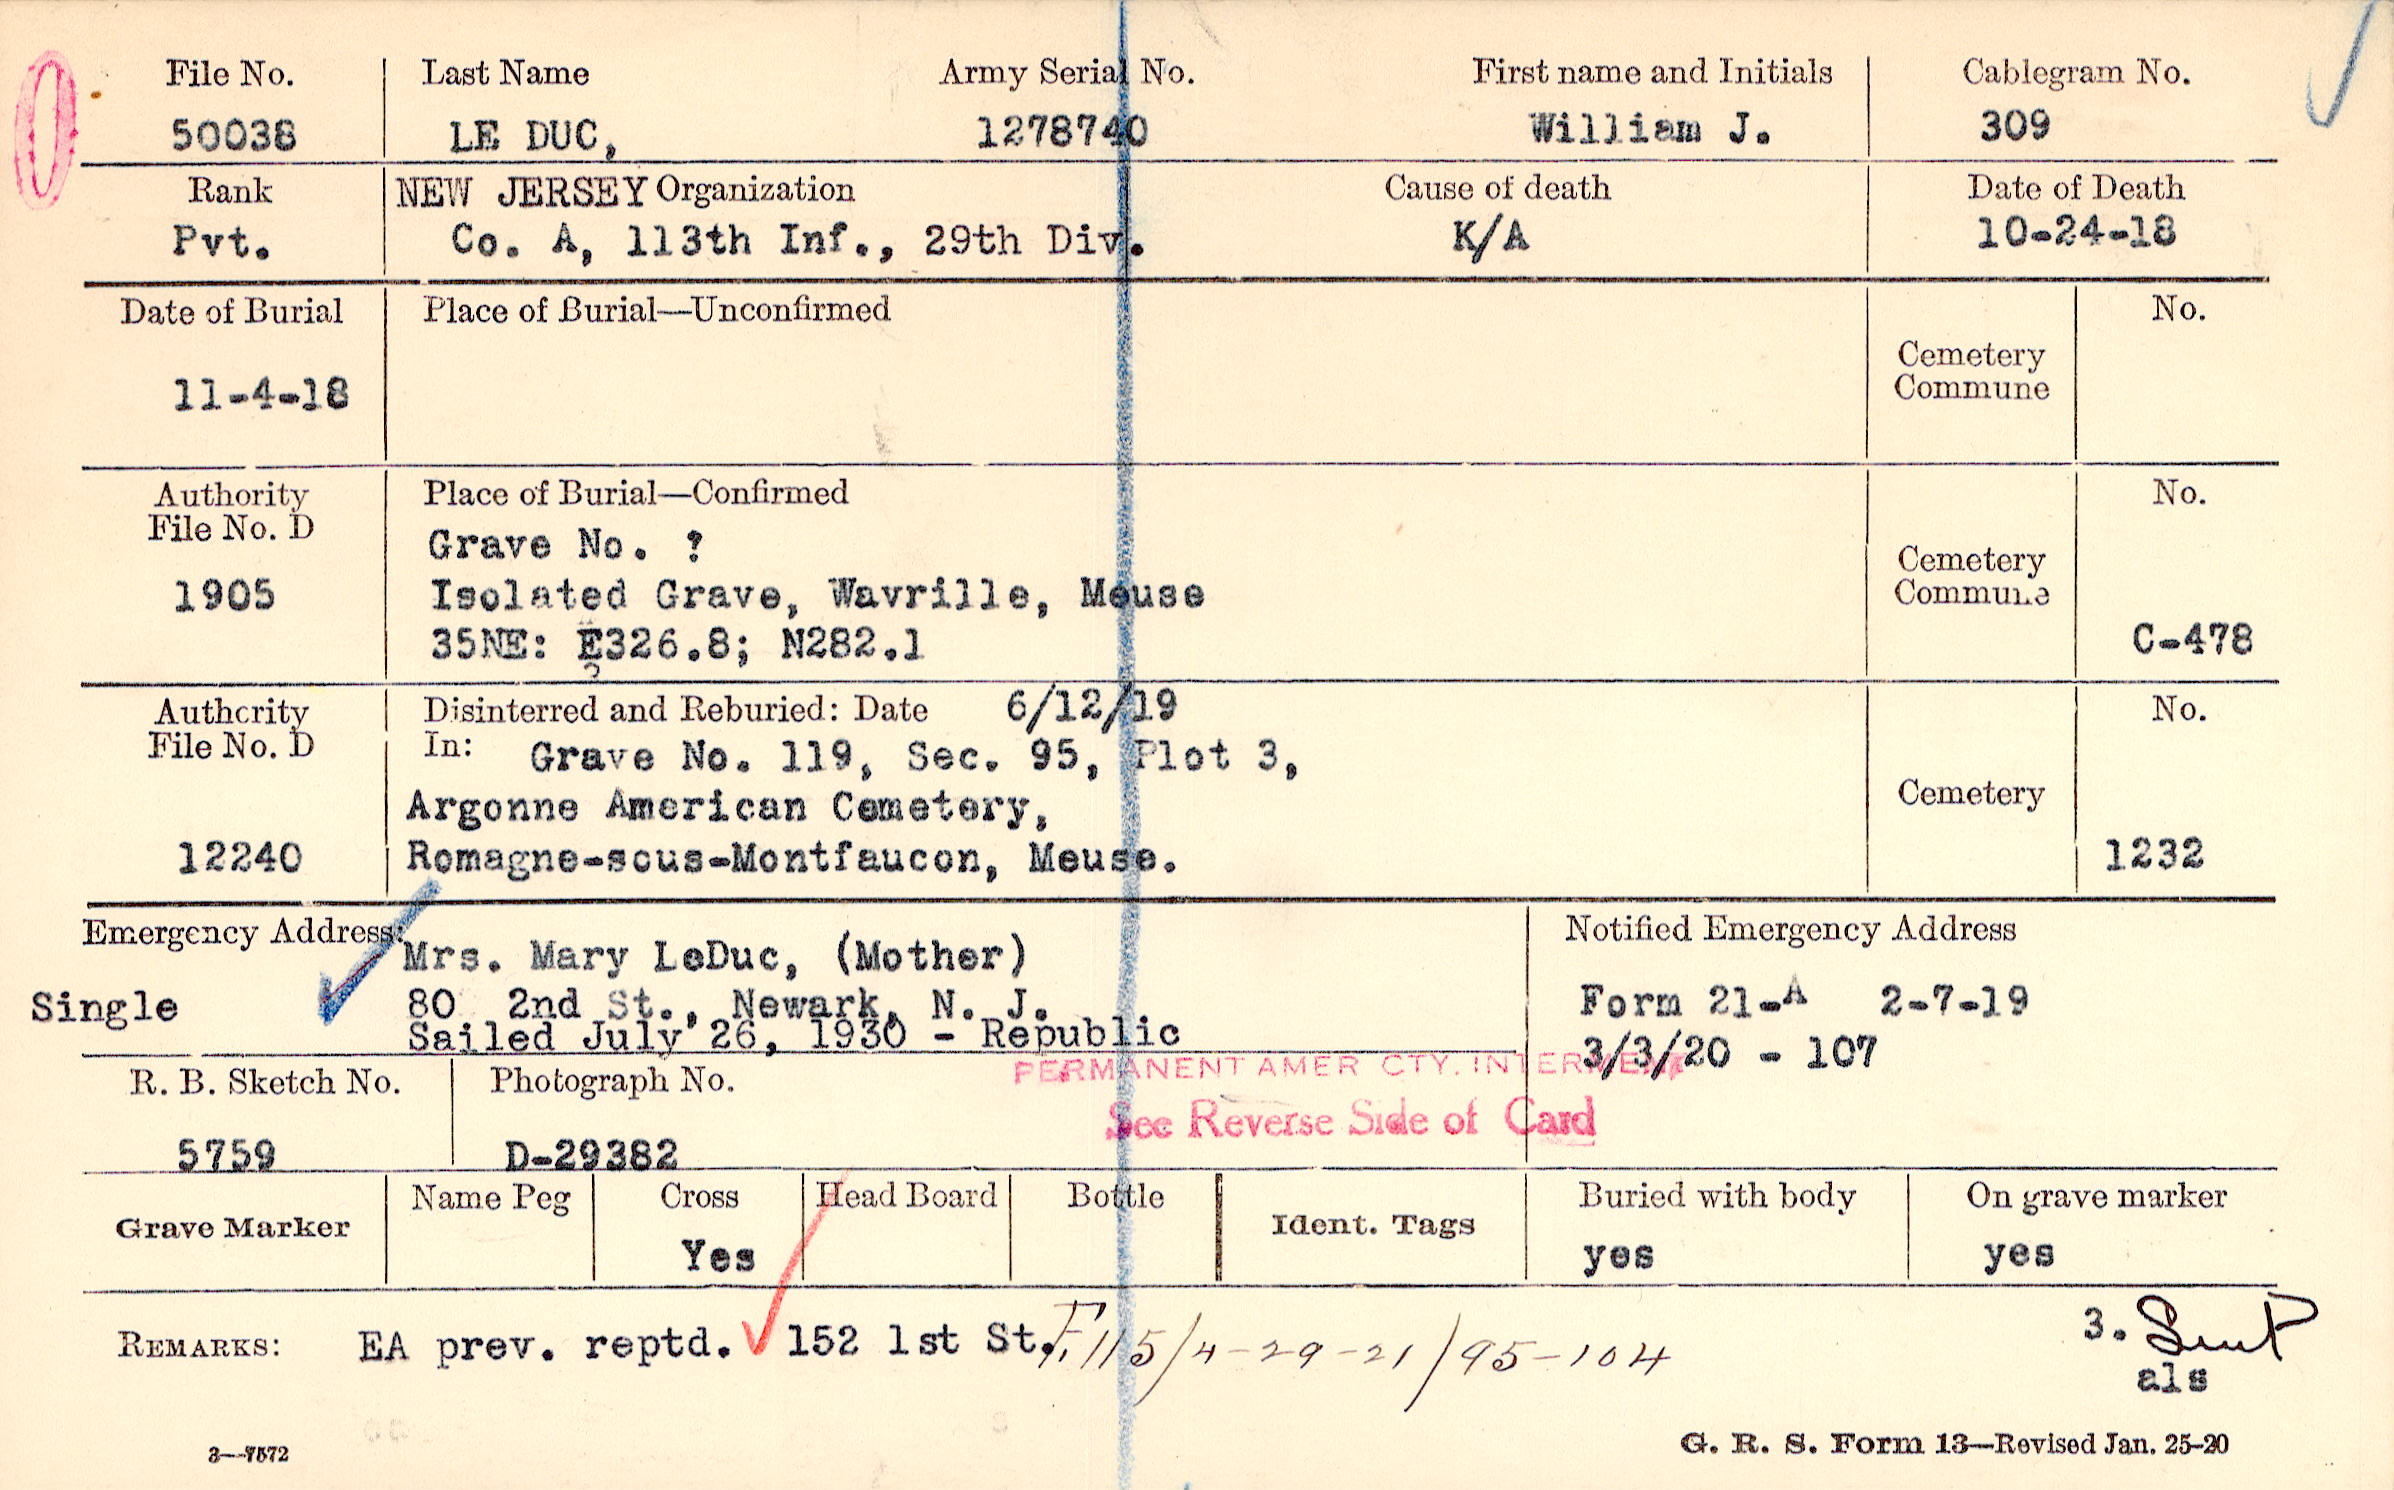 File No. Last Name Army Serial No. First name and Initials Cablegram No.
50038 LE DUC, 1278740 William J. 309
Rank NEW JERSEY Organization Cause of death Date of Death
Pvt. Co. A, 113th Inf., 29th Div. K/A 10-24-18
Date of Burial Place of Burial—Unconfirmed No.
Cemetery
Commune
11-4-18
Authority Place of Burial—Confirmed No.
File No. D
Grave No. ?
Cemetery
1905 Isolated Grave, Wavrille, Meuse Commune
35NE: E326.8; N282.1 C-478
?
Authority Disinterred and Reburied: Date 6/12/19 No.
File No. D In: Grave No. 119, Sec. 95, Plot 3,
Argonne American Cemetery, Cemetery
12240 Romagne-sous-Montfaucon, Meuse. 1232
Emergency Address: Notified Emergency Address
Mrs. Mary LeDuc, (Mother)
Single 80 2nd St., Newark, N. J. Form 21-A 2-7-19
Sailed July 26, 1930 - Republic
3/3/20 - 107
PERMANENT AMER CTY. INTERMENT
R. B. Sketch No. Photograph No.
See Reverse Side of Card
5759 D-29382
Grave Marker Name Peg Cross Head Board Bottle Ident. Tags Buried with body On grave marker
Yes yes yes
REMARKS: EA prev. reptd. 152 1st St. F.115/4-29-21/95-104 3.
als
3—7572 G. R. S. Form 13—Revised Jan. 25-20